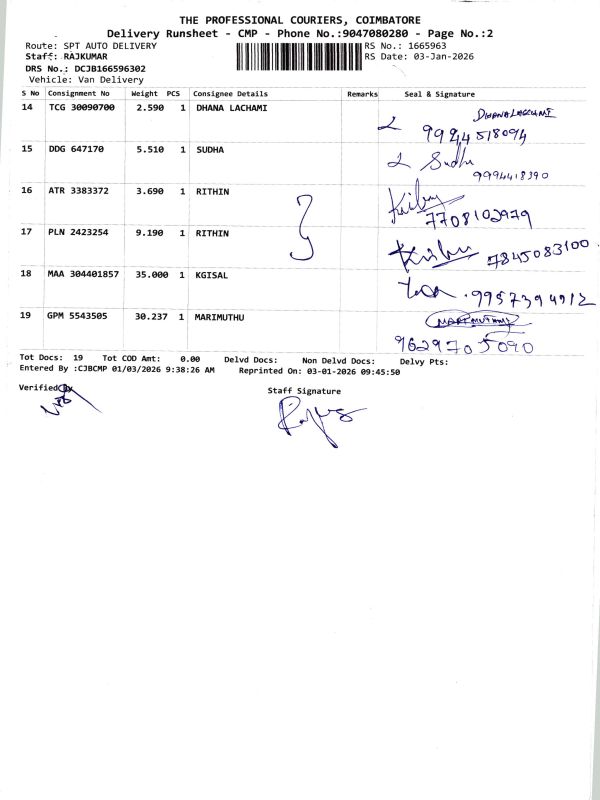 THE PROFESSIONAL COURIERS, COIMBATORE
Delivery Runsheet - CMP - Phone No.:9047080280 - Page No.:2
Route: SPT AUTO DELIVERY RS No.: 1665963
Staff: RAJKUMAR RS Date: 03-Jan-2026
DRS No.: DCJB166596302
Vehicle: Van Delivery
S No Consignment No Weight PCS Consignee Details Remarks Seal & Signature
14 TCG 30090700 2.590 1 DHANA LACHAMI DHANALACHUMI
9944518094
15 DDG 647170 5.510 1 SUDHA Sudha
9994418390
16 ATR 3383372 3.690 1 RITHIN
7708102979
17 PLN 2423254 9.190 1 RITHIN 7845083100
18 MAA 304401857 35.000 1 KGISAL 9957394912
19 GPM 5543505 30.237 1 MARIMUTHU MARIMUTHU
9629705090
Tot Docs: 19 Tot COD Amt: 0.00 Delvd Docs: Non Delvd Docs: Delvy Pts:
Entered By :CJBCMP 01/03/2026 9:38:26 AM Reprinted On: 03-01-2026 09:45:50
Verified By Staff Signature